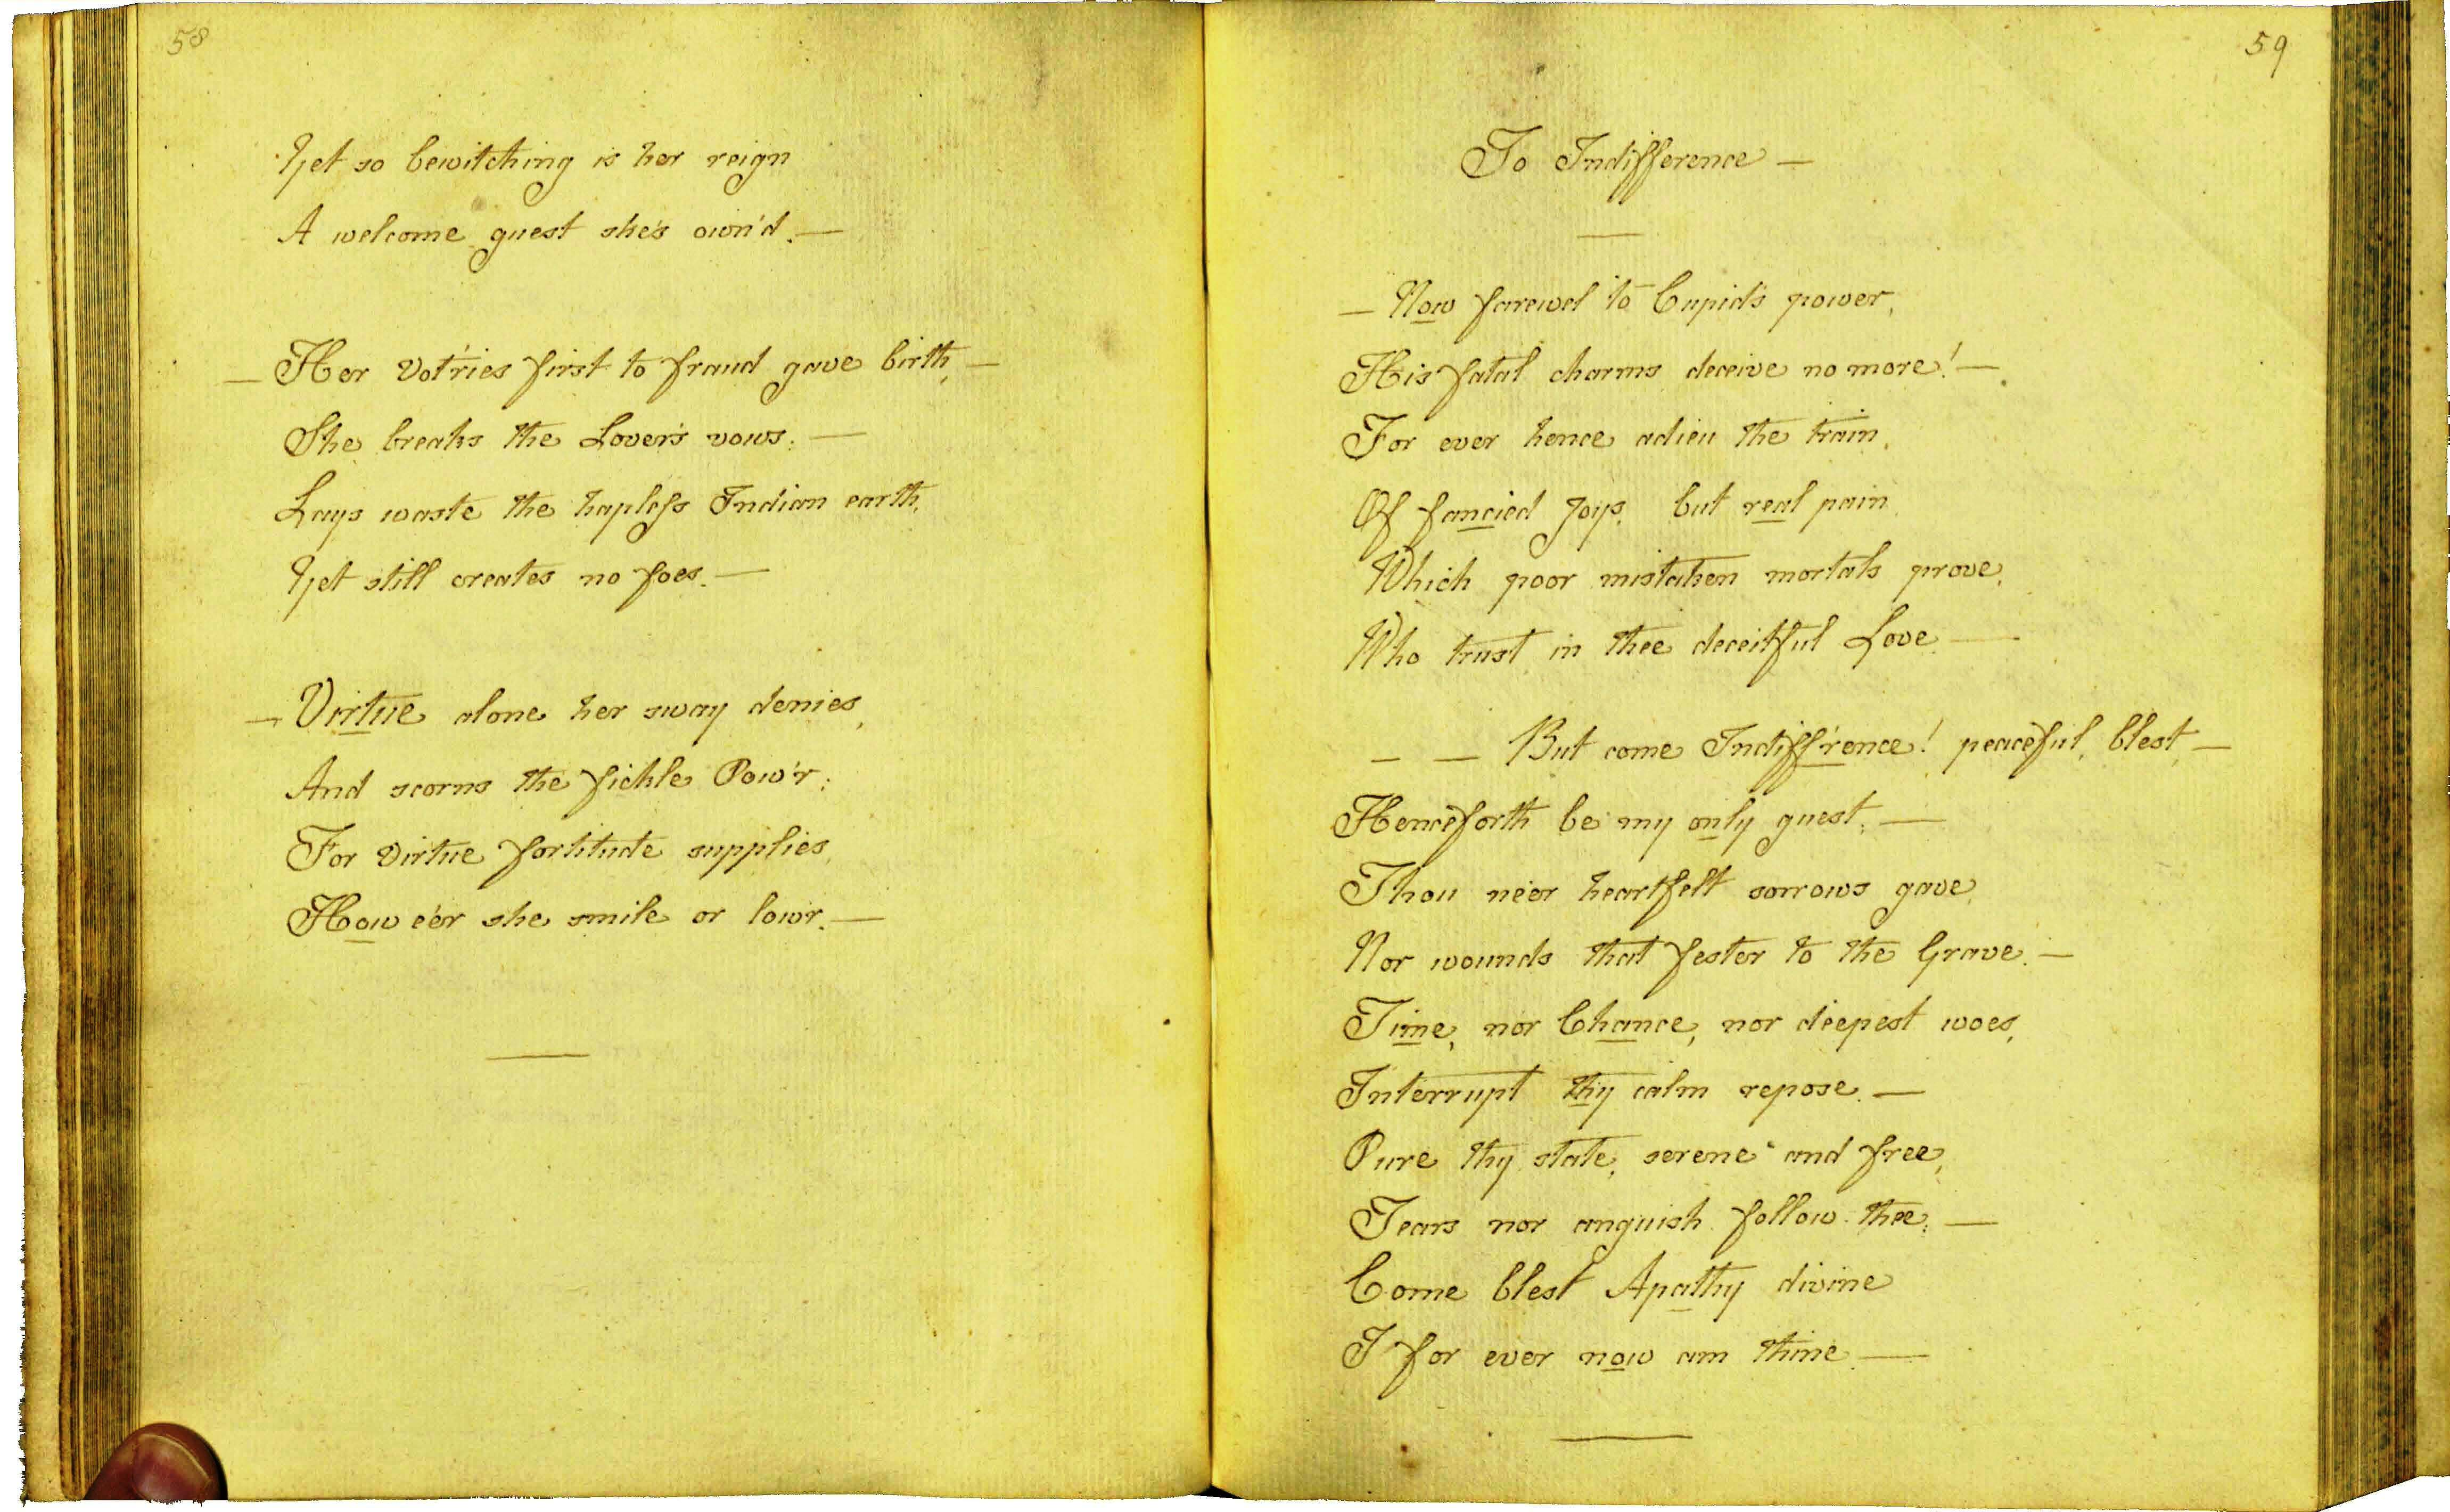 58
Yet so bewitching is her reign
A welcome guest she's own'd. —
— Her Vot'ries first to fraud gave birth, —
She breaks the Lover's vows: —
Lays waste the hapless Indian earth,
Yet still creates no foes. —
— Virtue alone her sway denies,
And scorns the fickle Pow'r:
For Virtue fortitude supplies,
How e'er she smile or low'r. —
59
To Indifference —
— Now farewel to Cupid's power,
His fatal charms deceive no more! —
For ever hence adieu the train,
Of fancied Joys, but real pain,
Which poor mistaken mortals prove,
Who trust in thee deceitful Love. —
— — But come Indiff'rence! peaceful, blest, —
Henceforth be my only guest; —
Thou ne'er heartfelt sorrows gave,
Nor wounds that fester to the Grave. —
Time, nor Chance, nor deepest woes,
Interrupt thy calm repose. —
Pure thy state, serene and free,
Tears nor anguish follow thee; —
Come blest Apathy divine
I for ever now am thine. —